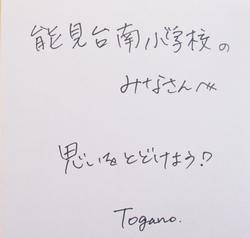 能見台南小学校の
みなさんへ
思いをとどけよう!
Togano.